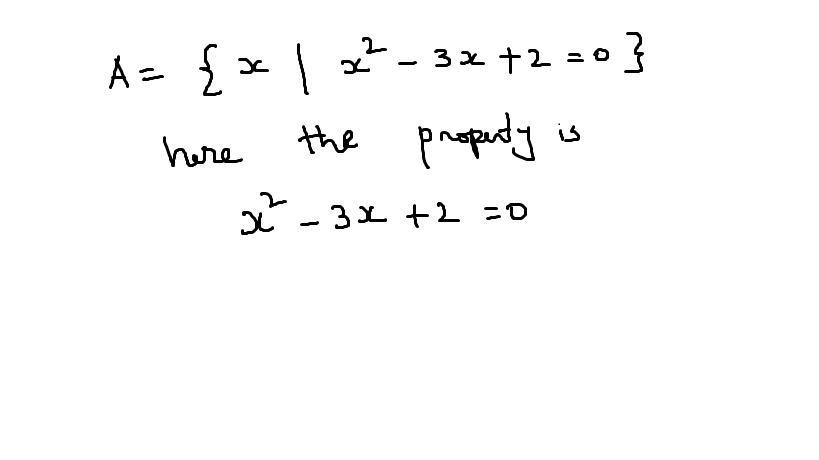 A = { x | x² - 3x + 2 = 0 }
here the property is
x² - 3x + 2 = 0